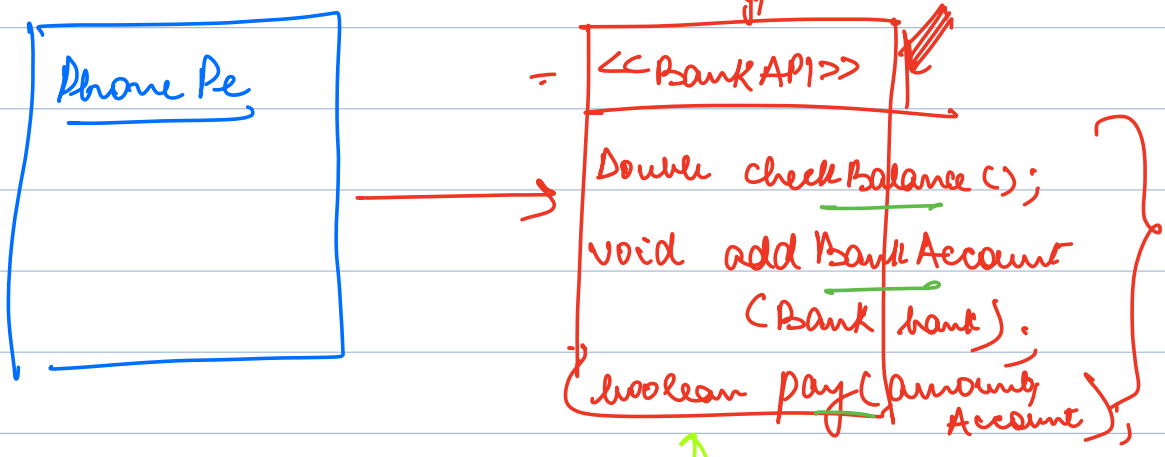 Phone Pe
<<BankAPI>>
Double checkBalance();
void addBankAccount
(Bank bank);
boolean pay(amount,
Account);